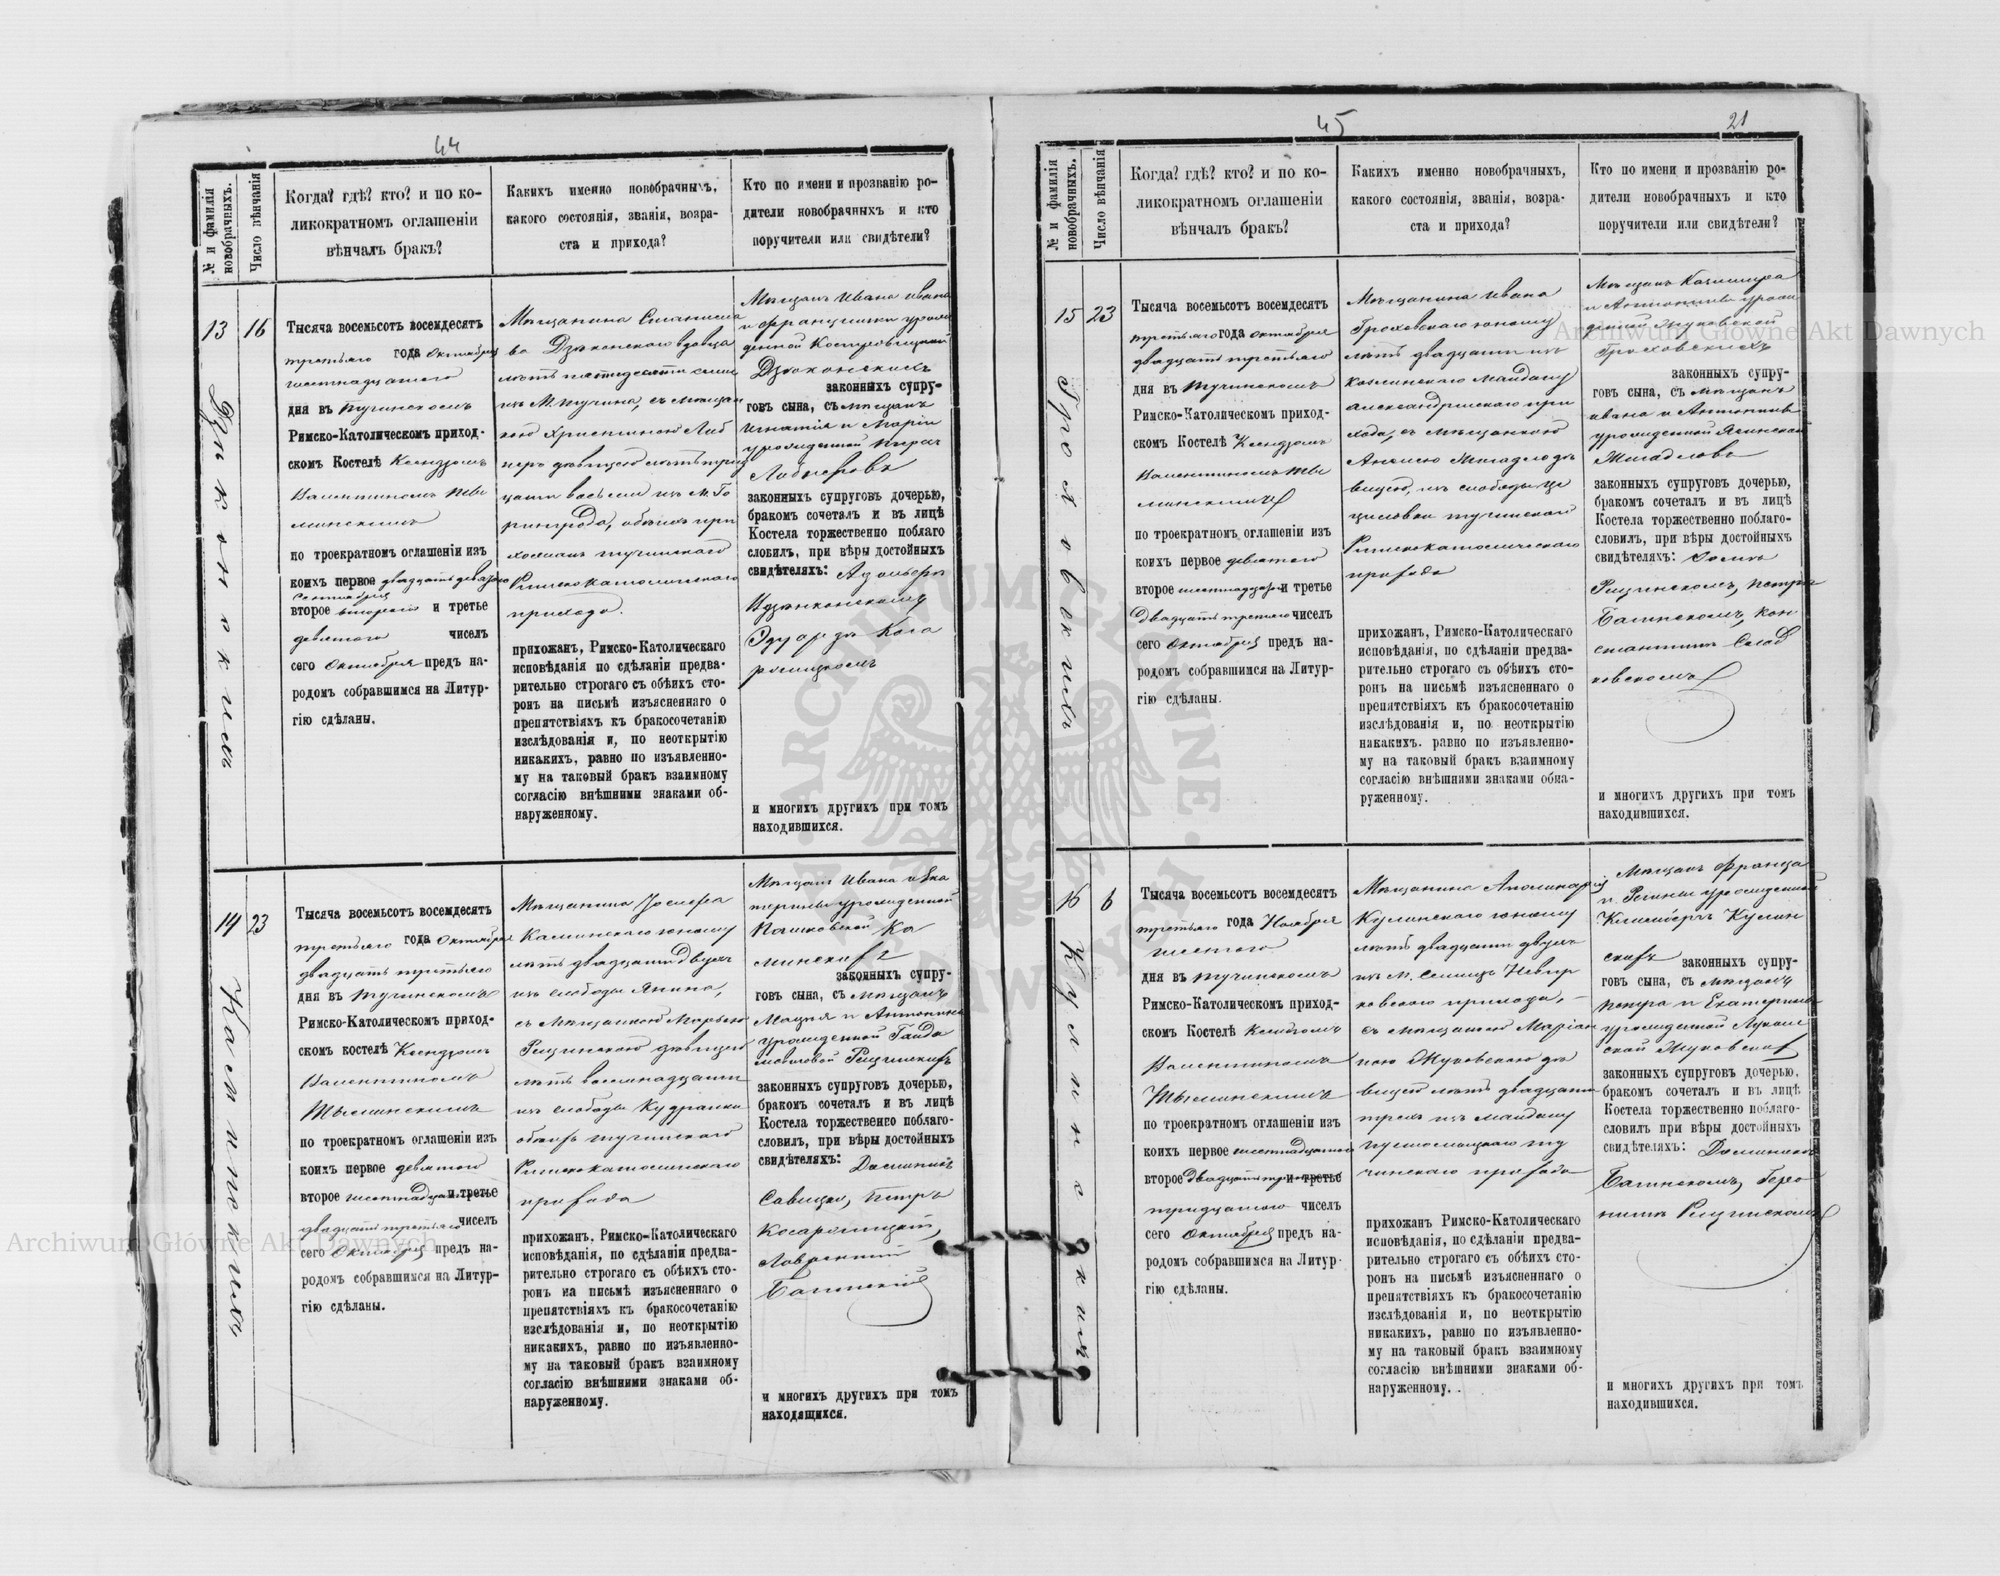 44
№ и фамилія новобрачныхъ.
Число вѣнчанія
Когда? гдѣ? кто? и по ко-
ликократномъ оглашеніи
вѣнчалъ бракъ?
Какихъ именно новобрачныхъ,
какого состоянія, званія, возра-
ста и прихода?
Кто по имени и прозванію ро-
дители новобрачныхъ и кто
поручители или свидѣтели?
13
16
Тысяча восемьсотъ восемдесятъ
третьяго года Октября
шестнадцатаго
дня въ Тучинскомъ
Римско-Католическомъ приход-
скомъ Костелѣ Ксендзомъ
Валентиномъ
по троекратномъ оглашеніи изъ
коихъ первое двадцать девятого
Сентября
второе второго и третье
девятого чиселъ
сего Октября предъ на-
родомъ собравшимся на Литур-
гію сдѣланы.
Мѣщанина Станисла
ва Дзяконскаго вдовца
лѣтъ пятидесяти
изъ М. Тучина, съ мѣщан
кою Христиною Либ
неръ дѣвицею лѣтъ трид
цати восьми изъ М. Го
ринграда, обоихъ при
хожанъ Тучинского
Римскокатолическаго
прихода.
прихожанъ, Римско-Католическаго
исповѣданія по сдѣланіи предва-
рительно строгаго съ обѣихъ сто-
ронъ на письмѣ изъясненнаго о
препятствіяхъ къ бракосочетанію
изслѣдованія и, по неоткрытію
никакихъ, равно по изъявленно-
му на таковый бракъ взаимному
согласію внѣшними знаками об-
наруженному.
Мѣщанъ Ивана
и Францишки урож
денной
Дзяконскихъ
законныхъ супру-
говъ сына, съ мѣщанъ
Игнатія и Маріи
урожденной
Либнеровъ
законныхъ супруговъ дочерью,
бракомъ сочеталъ и въ лицѣ
Костела торжественно поблаго
словилъ, при вѣры достойныхъ
свидѣтеляхъ:
Эдуардъ Коса
рошицкомъ
и многихъ другихъ при томъ
находившихся.
14
23
Каминскихъ
Тысяча восемьсотъ восемдесятъ
третьяго года Октября
двадцать третьяго
дня въ Тучинскомъ
Римско-Католическомъ приход-
скомъ костелѣ Ксендзомъ
Валентиномъ
по троекратномъ оглашеніи изъ
коихъ первое девятого
второе шестнадцатого и третье
двадцать третьяго чиселъ
сего Октября предъ на-
родомъ собравшимся на Литур-
гію сдѣланы.
Мѣщанина Іосифа
Каминскаго юношу
лѣтъ двадцати двухъ
изъ слободы Янина,
съ мѣщанкою Марьею
Рещинскою дѣвицею
лѣтъ восемнадцати
изъ слободы Кудранки
обоихъ Тучинского
Римскокатолическаго
прихода
прихожанъ, Римско-Католическаго
исповѣданія, по сдѣланіи предва-
рительно строгаго съ обѣихъ сто-
ронъ на письмѣ изъясненнаго о
препятствіяхъ къ бракосочетанію
изслѣдованія и, по неоткрытію
никакихъ, равно по изъявленно-
му на таковый бракъ взаимному
согласію внѣшними знаками об-
наруженному.
Мѣщанъ Ивана и Ека
терины урожденной
Пашковской Ка
минскихъ
законныхъ супру-
говъ сына, съ мѣщанъ
и Антонины
урожденной
Рещинскихъ
законныхъ супруговъ дочерью,
бракомъ сочеталъ и въ лицѣ
Костела торжественно поблаго-
словилъ, при вѣры достойныхъ
свидѣтеляхъ: Доминикъ
Савицкій, Петръ
Косарошицкій,
Багинскій
и многихъ другихъ при томъ
находящихся.
45
21
№ и фамилія новобрачныхъ.
Число вѣнчанія
Когда? гдѣ? кто? и по ко-
ликократномъ оглашеніи
вѣнчалъ бракъ?
Какихъ именно новобрачныхъ,
какого состоянія, званія, возра-
ста и прихода?
Кто по имени и прозванію ро-
дители новобрачныхъ и кто
поручители или свидѣтели?
15
23
Гроховскихъ
Тысяча восемьсотъ восемдесятъ
третьяго года Октября
двадцать третьяго
дня въ Тучинскомъ
Римско-Католическомъ приход-
скомъ Костелѣ Ксендзомъ
Валентиномъ
по троекратномъ оглашеніи изъ
коихъ первое девятого
второе шестнадцатого и третье
двадцать третьяго чиселъ
сего Октября предъ на-
родомъ собравшимся на Литур-
гію сдѣланы.
Мѣщанина Ивана
Гроховскаго юношу
лѣтъ двадцати изъ
Майдану
Александрійскаго при
хода, съ мѣщанкою
дѣ
вицею, изъ слободы
Тучинского
Римскокатолическаго
прихода
прихожанъ, Римско-Католическаго
исповѣданія, по сдѣланіи предва-
рительно строгаго съ обѣихъ сто-
ронъ на письмѣ изъясненнаго о
препятствіяхъ къ бракосочетанію
изслѣдованія и, по неоткрытію
никакихъ. равно по изъявленно-
му на таковый бракъ взаимному
согласію внѣшними знаками обна-
руженному.
Мѣщанъ Казимира
и Антонины урож
денной Жуковской
Гроховскихъ
законныхъ супру-
говъ сына, съ мѣщанъ
Ивана и Антонины
урожденной
законныхъ супруговъ дочерью,
бракомъ сочеталъ и въ лицѣ
Костела торжественно поблаго-
словилъ, при вѣры достойныхъ
свидѣтеляхъ:
Рещинскомъ, Петръ
Багинскомъ, Кон
стантинъ
и многихъ другихъ при томъ
находившихся.
16
6
Кулинскій
Тысяча восемьсотъ восемдесятъ
третьяго года Ноября
шестого
дня въ Тучинскомъ
Римско-Католическомъ приход-
скомъ Костелѣ Ксендзомъ
Валентиномъ
по троекратномъ оглашеніи изъ
коихъ первое шестнадцатого
второе двадцать третьяго и третье
тридцатого чиселъ
сего Октября предъ на-
родомъ собравшимся на Литур-
гію сдѣланы.
Мѣщанина Аполинарія
Кулинскаго юношу
лѣтъ двадцати двухъ
изъ М. Селищъ Невир
ковскаго прихода,
съ мѣщанкою Маріан
ною Жуковскою дѣ
вицею лѣтъ двадцати
трехъ изъ Майдану
Ту
чинскаго прихода
прихожанъ Римско-Католическаго
исповѣданія, по сдѣланіи предва-
рительно строгаго съ обѣихъ сто-
ронъ на письмѣ изъясненнаго о
препятствіяхъ къ бракосочетанію
изслѣдованія и, по неоткрытію
никакихъ, равно по изъявленно-
му на таковый бракъ взаимному
согласію внѣшними знаками об-
наруженному.
Мѣщанъ Франца
и Регины урожденной
Кулин
скихъ законныхъ супру-
говъ сына, съ мѣщанъ
Петра и Екатерины
урожденной
Жуковскихъ
законныхъ супруговъ дочерью,
бракомъ сочеталъ и въ лицѣ
Костела торжественно поблаго-
словилъ при вѣры достойныхъ
свидѣтеляхъ: Доминикъ
Багинскомъ, Геро
нимъ Рещинскомъ
и многихъ другихъ при томъ
находившихся.
Archiwum Główne Akt Dawnych
Archiwum Główne Akt Dawnych
ARCHIWUM GŁÓWNE AKT DAWNYCH